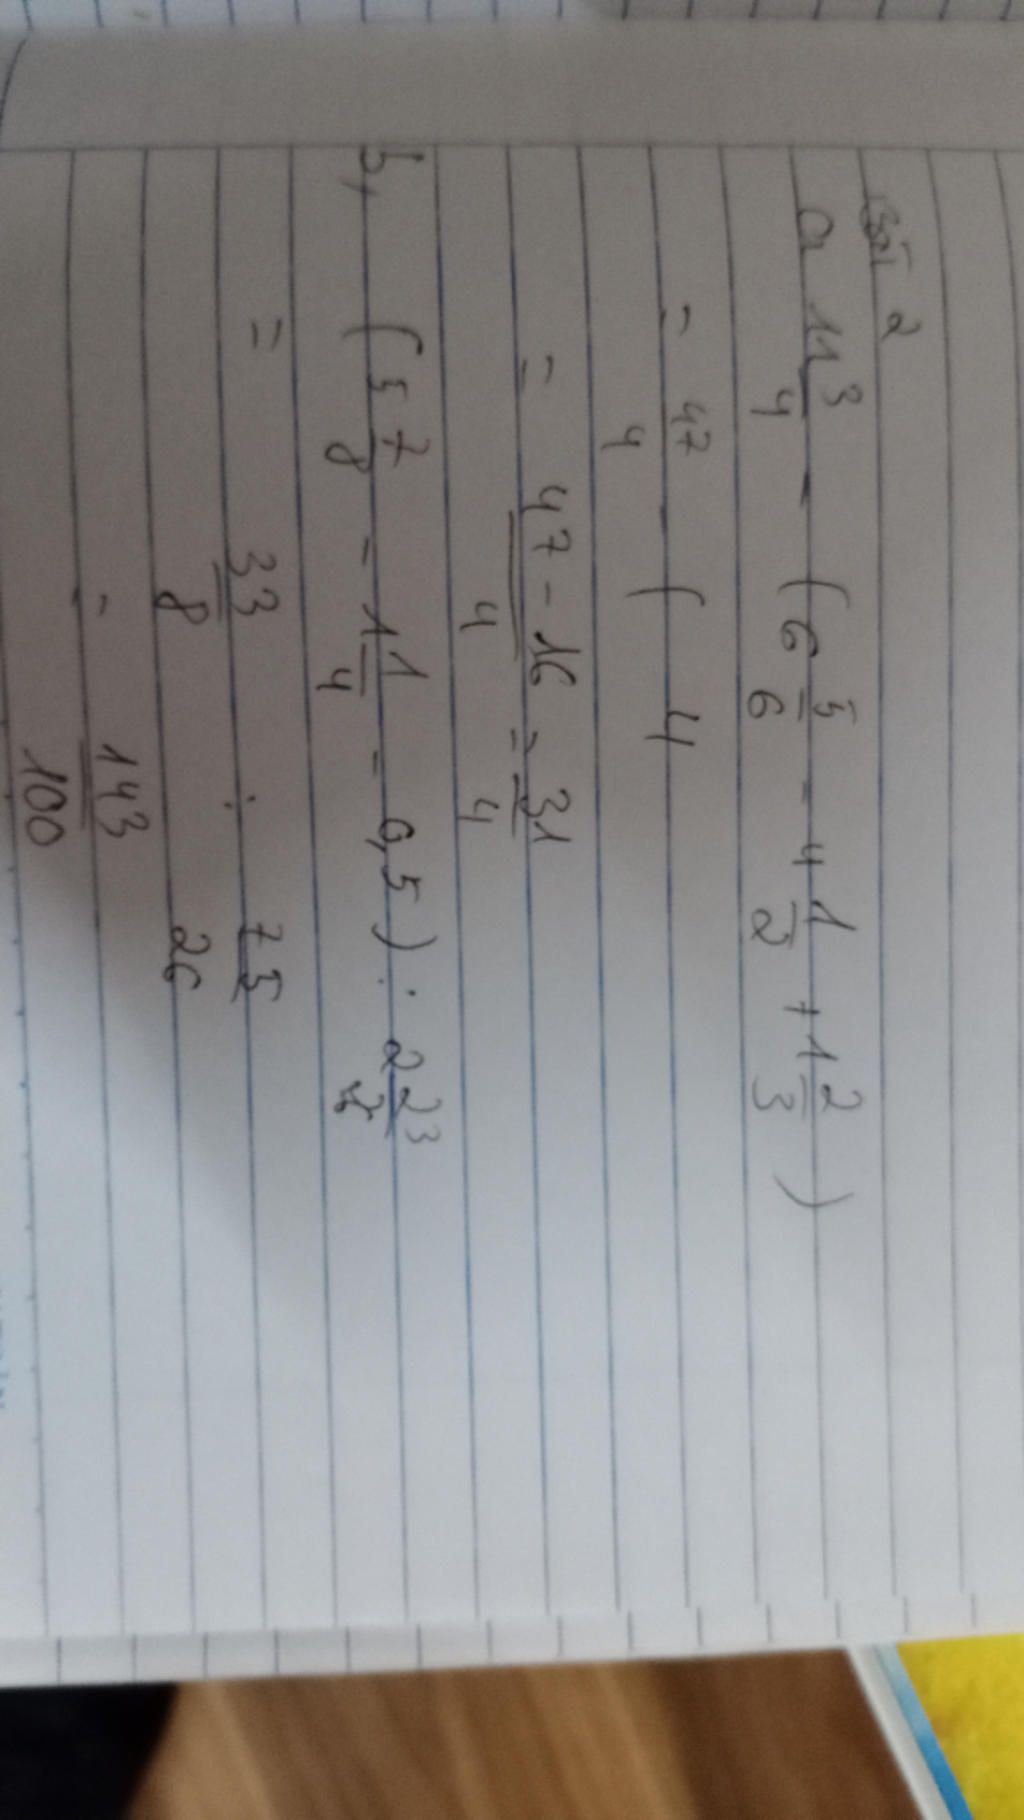 Bài 2
a 11 3/4 - (6 5/6 - 4 1/2 + 1 2/3)
= 47/4 - ( 4
= 47-16/4 = 31/4
b, (5 7/8 - 1 1/4 - 0,5) : 2
= 33/8 : 75/26
= 143/100